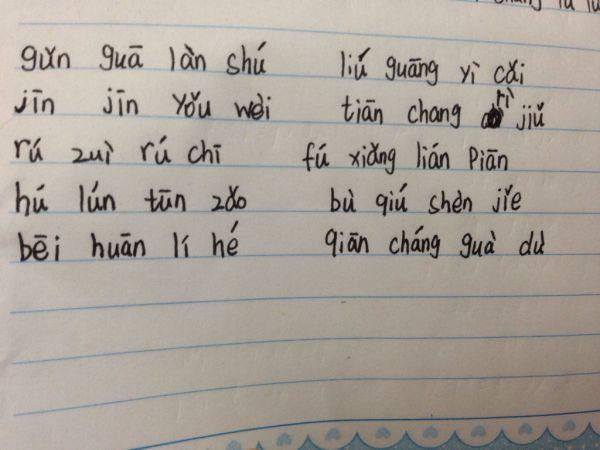 gǔn guā làn shú liú guāng yì cǎi
jīn jīn yǒu wèi tiān chang rì jiǔ
rú zuì rú chī fú xiǎng lián piān
hú lún tūn zǎo bù qiú shèn jiě
bēi huān lí hé qiān cháng guà dù